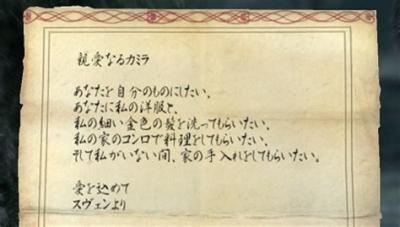 親愛なるカミラ
あなたを自分のものにしたい。
あなたに私の洋服と、
私の細い金色の髪を洗ってもらいたい。
私の家のコンロで料理をしてもらいたい。
そして私がいない間、家の手入れをしてもらいたい。
愛を込めて
スヴェンより